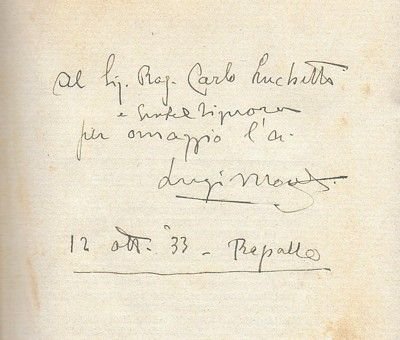 Al Sig. Rag. Carlo Luchetti
e Gentil Signora
per omaggio l'a.
Luigi
12 ott. '33 - Rapallo